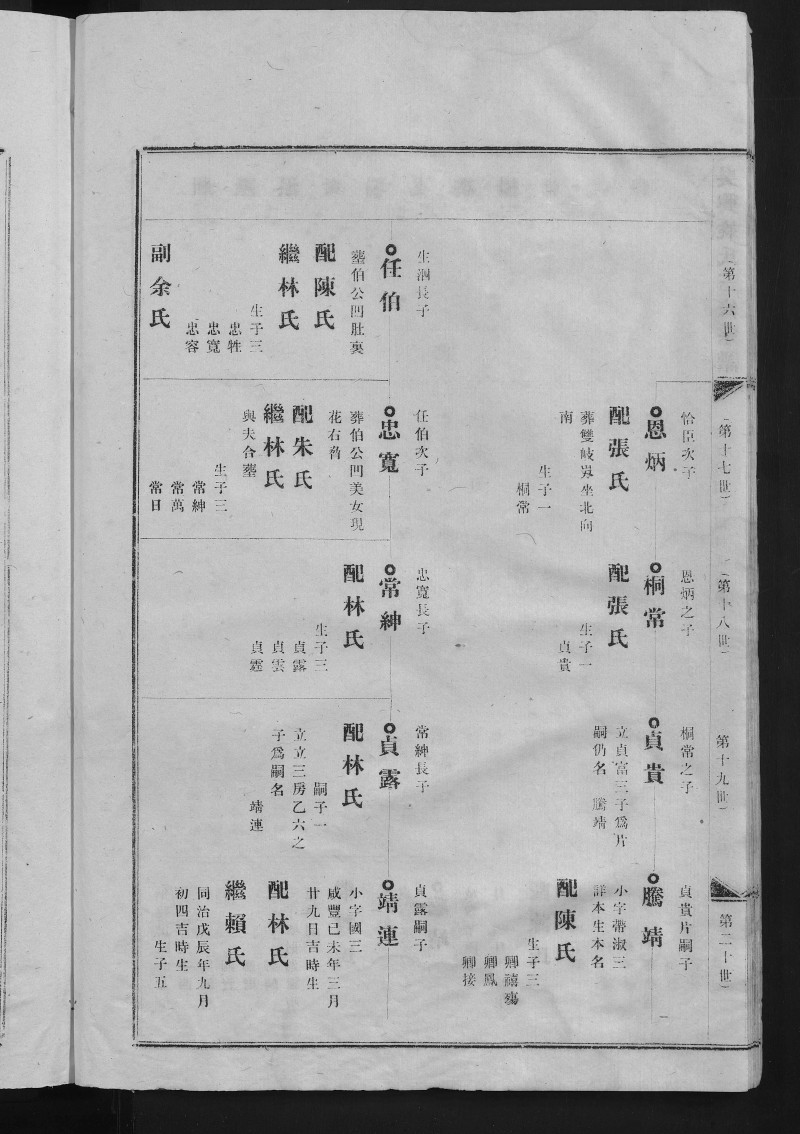 （第十六世）
（第十七世）
（第十八世）
第十九世）
第二十世）
恰臣次子
恩炳
配張氏
葬雙岐㘭坐北向
南
生子一
桐常
恩炳之子
桐常
配張氏
生子一
貞貴
桐常之子
貞貴
立貞富三子爲片
嗣仍名 騰靖
貞貴片嗣子
騰靖
小字帶淑三
詳本生本名
配陳氏
生子三
卿禧殤
卿鳳
卿接
生溷長子
任伯
塟伯公凹肚裏
配陳氏
繼林氏
生子三
忠牲
忠寬
忠容
副余氏
任伯次子
忠寬
葬伯公凹美女現
花右畲
配朱氏
繼林氏
與夫合塟
生子三
常紳
常萬
常日
忠寬長子
常紳
配林氏
生子三
貞露
貞雲
貞霆
常紳長子
貞露
配林氏
嗣子一
立立三房乙六之
子爲嗣名
靖連
貞露嗣子
靖連
小字國三
咸豐己未年三月
廿九日吉時生
配林氏
繼賴氏
同治戊辰年九月
初四吉時生
生子五